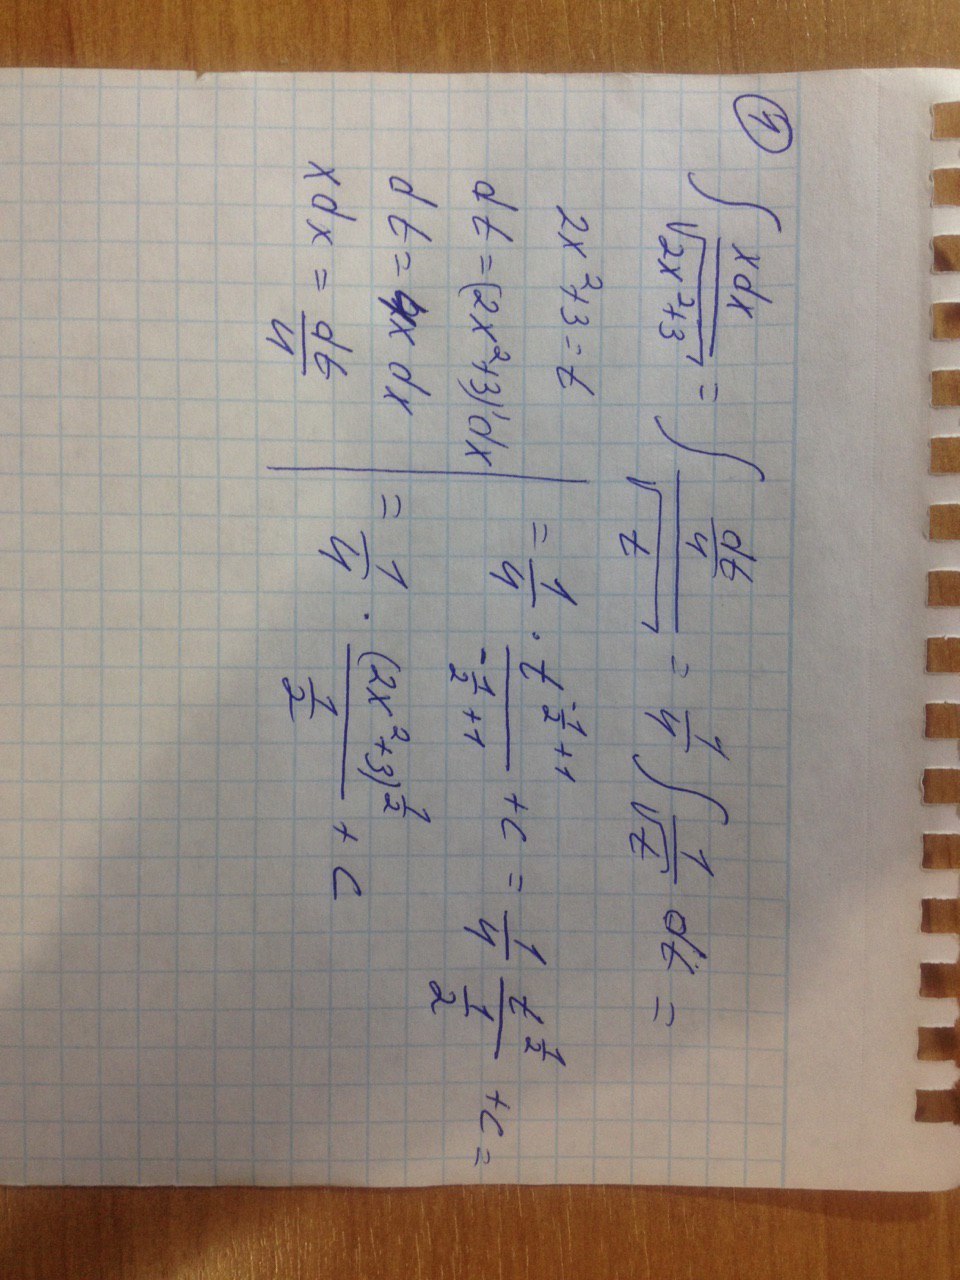 ④ ∫ xdx / √(2x²+3) = ∫ (dt/4) / √t = 1/4 ∫ 1/√t dt =
2x²+3=t
dt=(2x²+3)'dx
dt=4x dx
xdx = dt/4
= 1/4 · t^(-1/2+1) / (-1/2+1) +C = 1/4 t^(1/2) / (1/2) +C =
= 1/4 · (2x²+3)^(1/2) / (1/2) + C